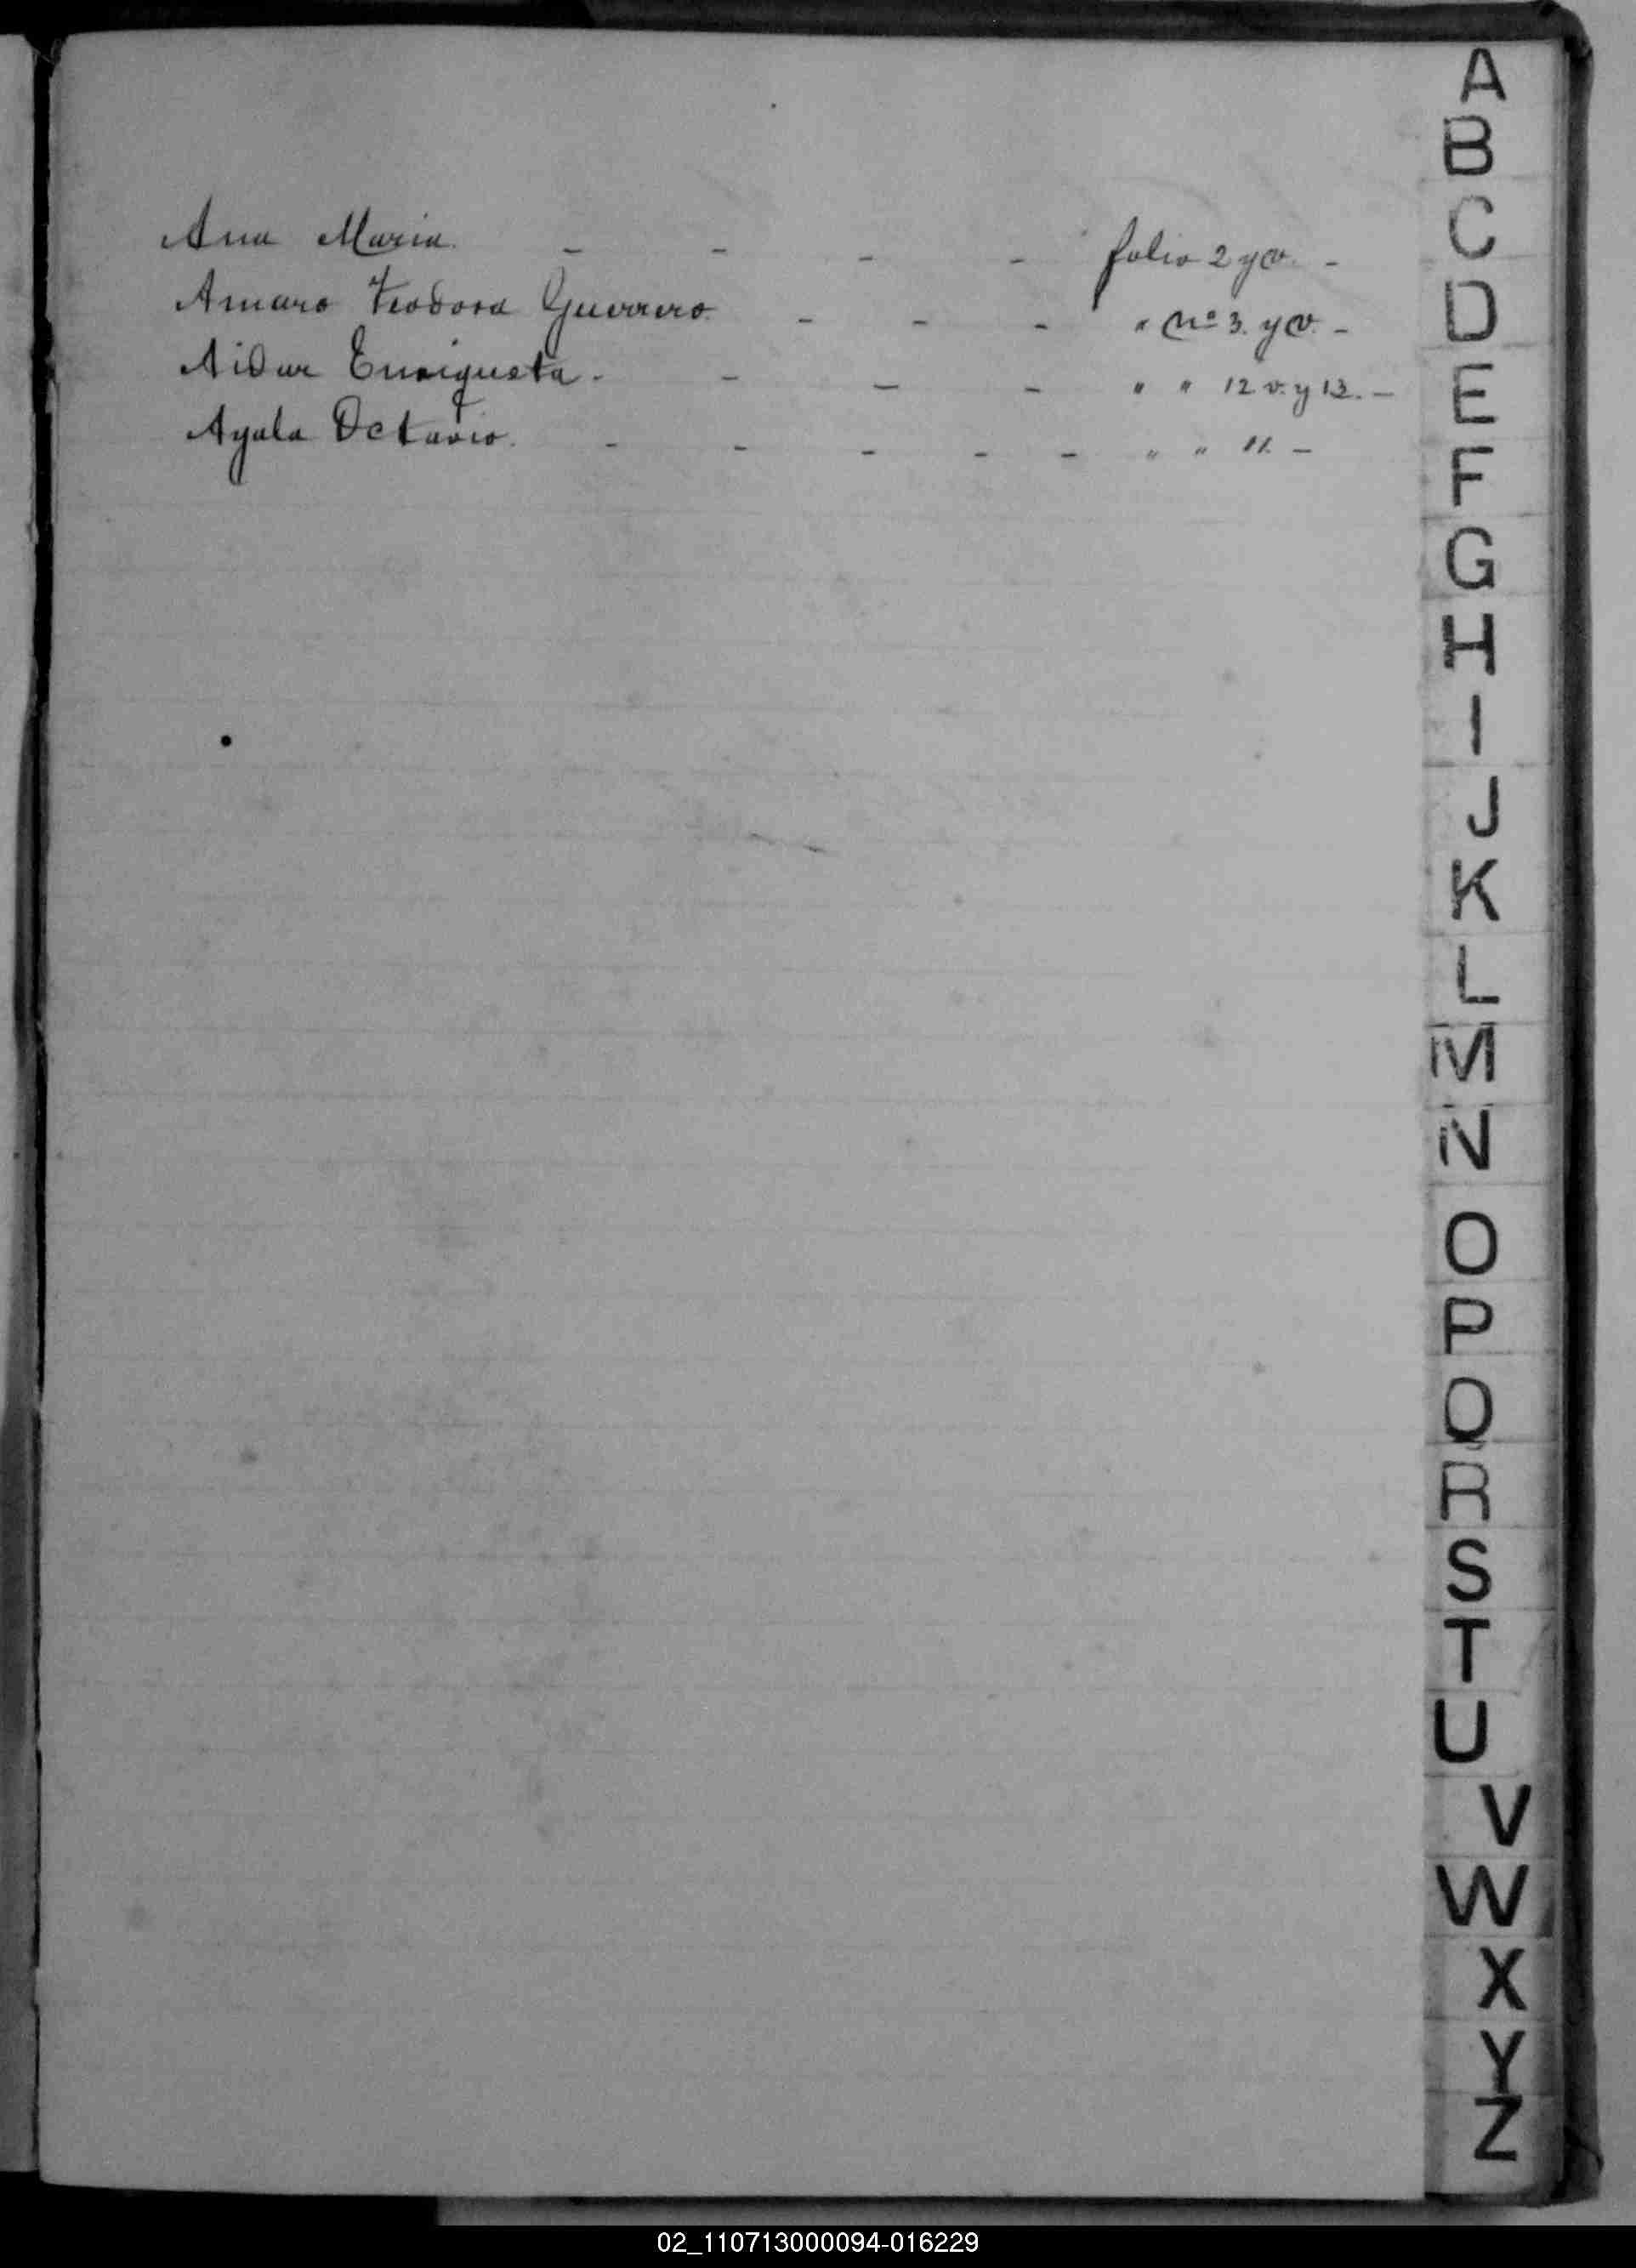 Ana Maria. - - - - folio 2 y v. -
Amaro Teodora Guerrero. - - - " No 3. y v. -
Aidar Enriqueta. - - - " " 12 v. y 13. -
Ayala Octavio. - - - - - " " 11. -
A
B
C
D
E
F
G
H
I
J
K
L
M
N
O
P
Q
R
S
T
U
V
W
X
Y
Z
02_110713000094-016229